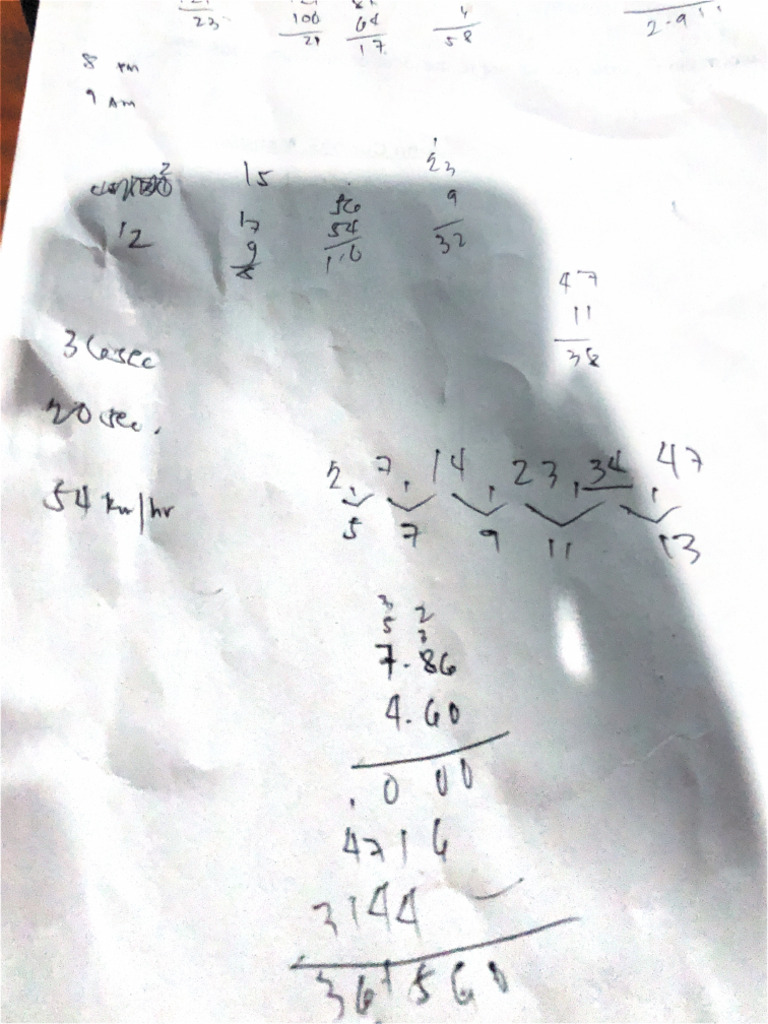 23 100 64 4 2.911
21 17 58
8 PM
9 AM
15 23
12 17 56 9
9 54 32
8 110
47
11
38
36sec
20 sec.
54 km/hr
2, 7, 14, 23, 34, 47
5 7 9 11 13
3 2
5 3
7.86
4.60
.0 00
4716
3144
361560